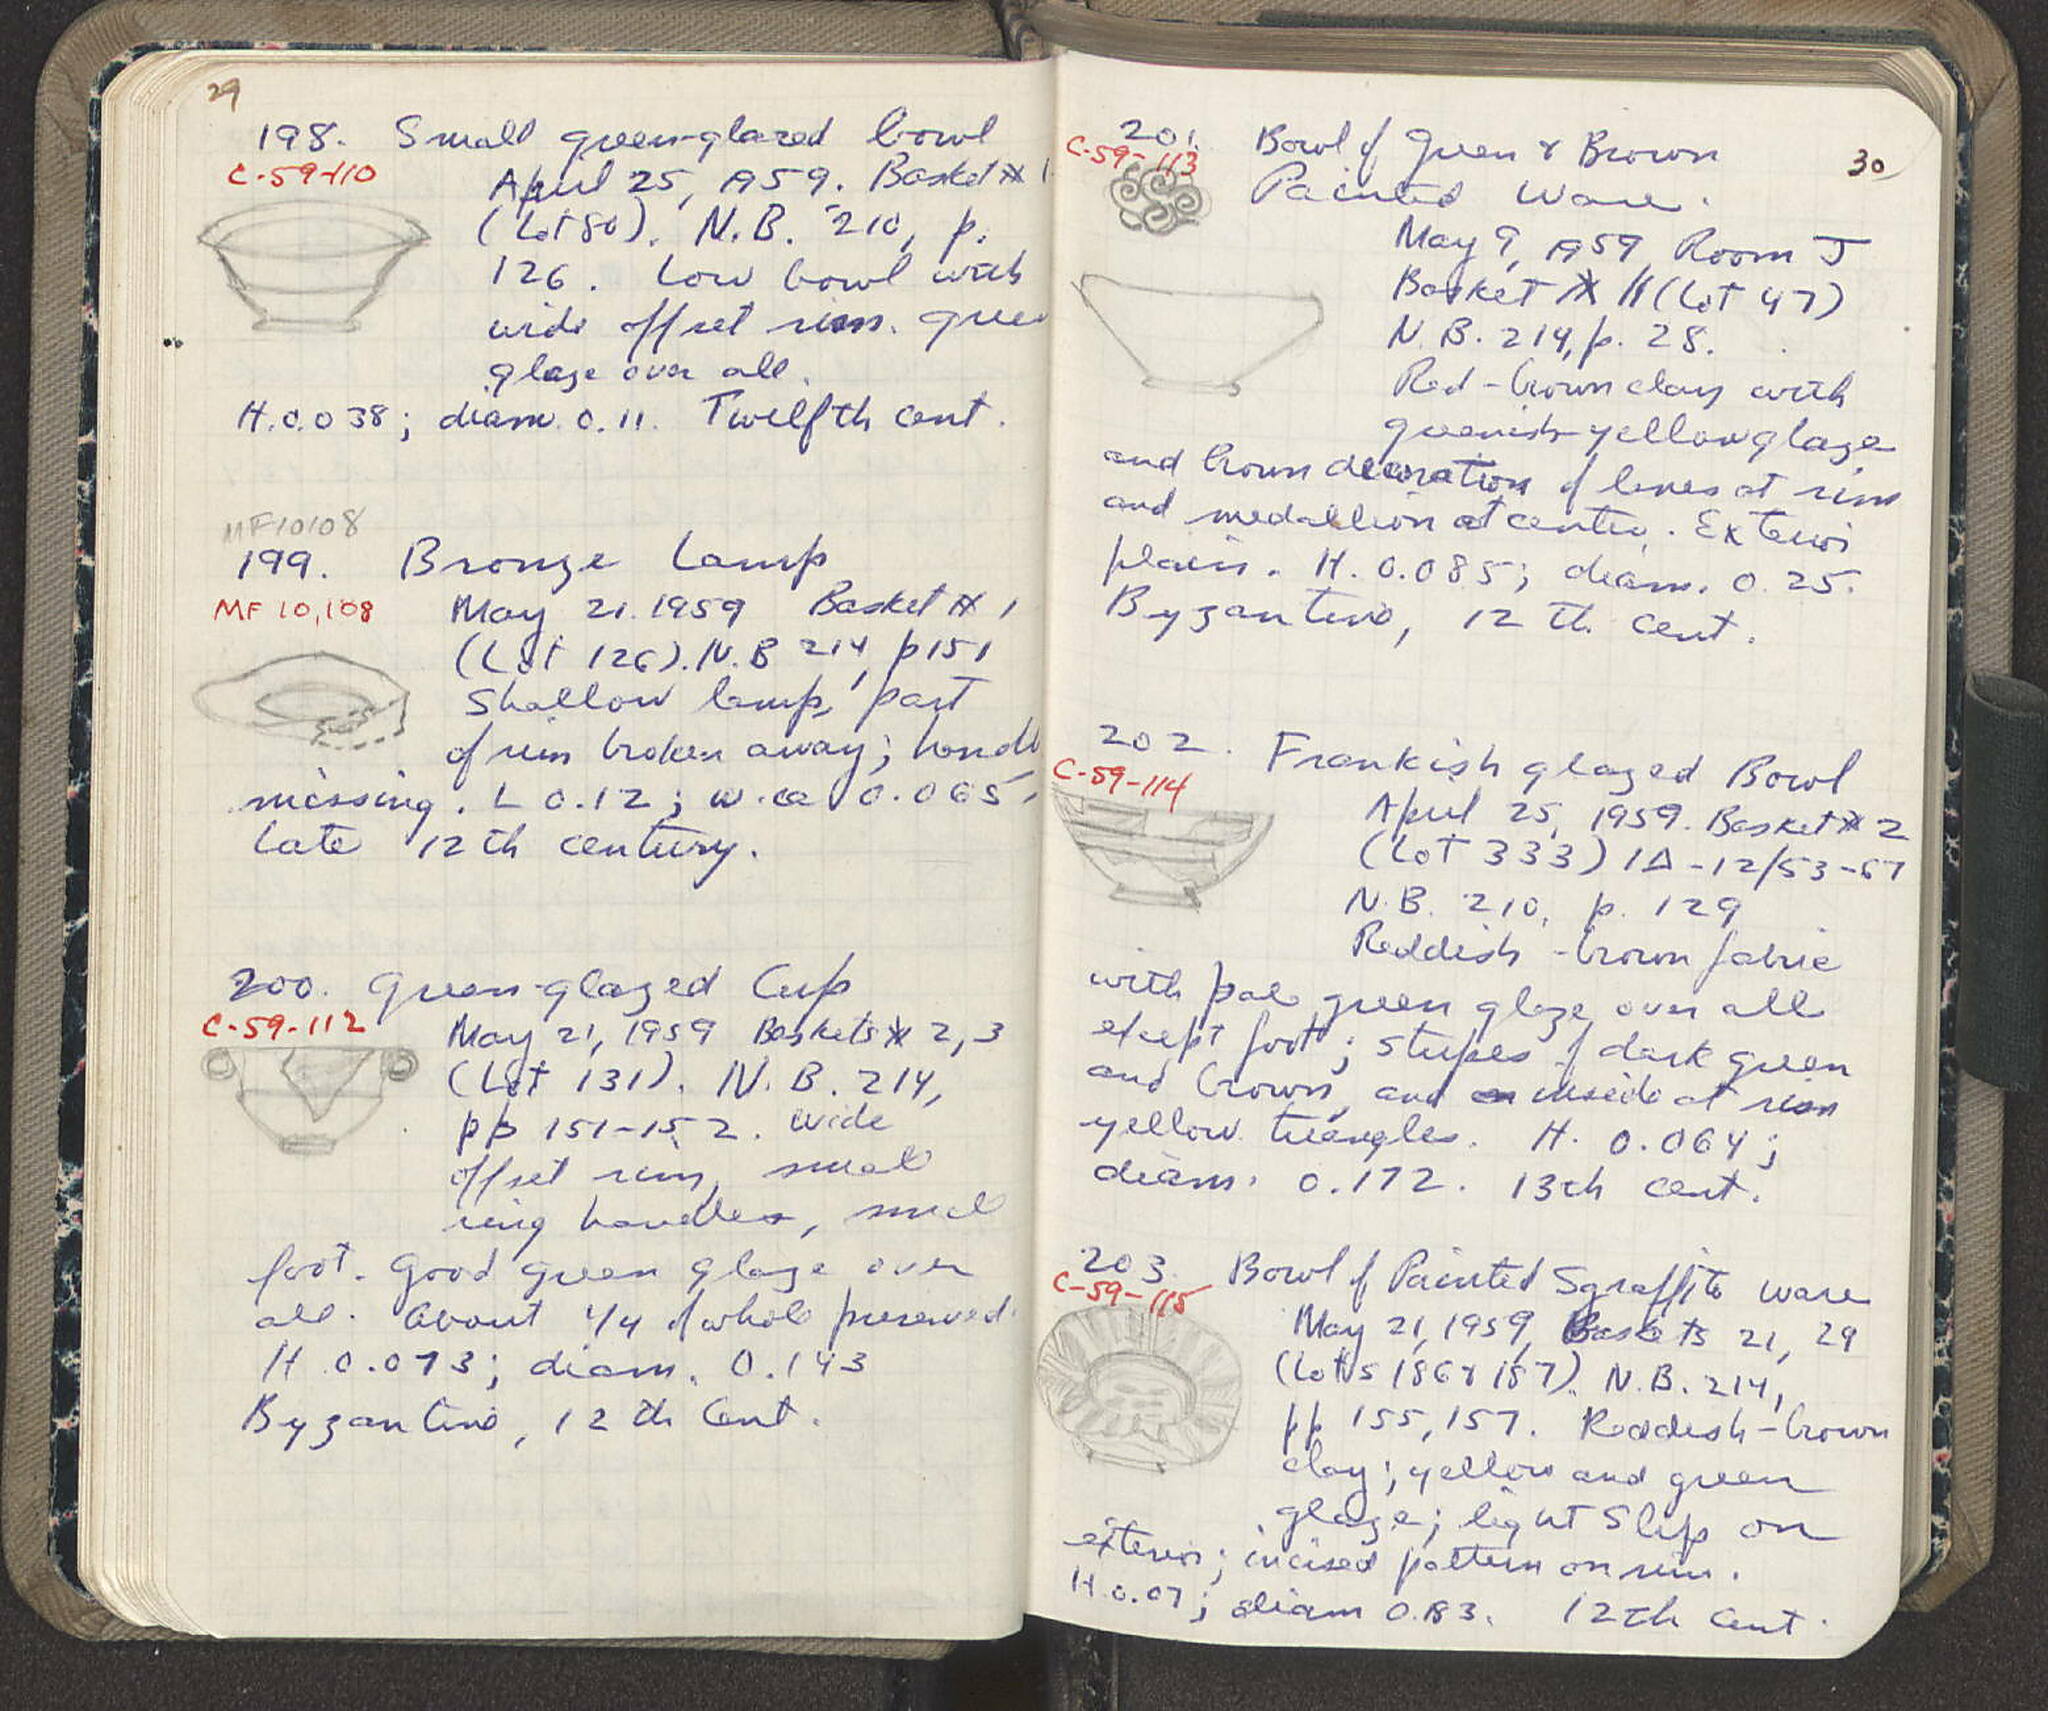 29
198. Small green-glazed bowl
C-59-110
April 25, 1959. Basket # 1
(Lot 80). N.B. 210, p.
126. Low bowl with
wide offset rim. Green
glaze over all.
H. 0.038; diam. 0.11. Twelfth cent.
MF10108
199. Bronze Lamp
MF 10,108
May 21. 1959 Basket # 1
(Lot 126). N.B 214, p 151
Shallow lamp, part
of rim broken away; handle
missing. L 0.12; w. ca 0.065,
Late 12th century.
200. Green-glazed Cup
C-59-112
May 21, 1959 Baskets # 2, 3
(Lot 131). N.B. 214,
pp 151-152. Wide
offset rim, small
ring handles, small
foot. Good green glaze over
all. About 1/4 of whole preserved.
H 0.073; diam. 0.143
Byzantine, 12th Cent.
30
201. Bowl of Green & Brown
C-59-113
Painted Ware.
May 9, 1959, Room J
Basket # 11 (Lot 47)
N.B. 214, p. 28.
Red-brown clay with
greenish-yellow glaze
and brown decoration of lines at rim
and medallion at center. Exterior
plain. H. 0.085; diam. 0.25.
Byzantine, 12th cent.
202. Frankish glazed Bowl
C-59-114
April 25, 1959. Basket # 2
(Lot 333) IΔ-12/53-67
N.B. 210, p. 129
Reddish-brown fabric
with pale green glaze over all
except foot; stripes of dark green
and brown, and inside at rim
yellow triangles. H. 0.064;
diam. 0.172. 13th cent.
203. Bowl of Painted Sgraffito Ware
C-59-115
May 21, 1959, Baskets 21, 29
(Lots 186 & 187). N.B. 214,
pp 155, 157. Reddish-brown
clay; yellow and green
glaze; light slip on
exterior; incised pattern on rim.
H. 0.07; diam 0.183. 12th Cent.